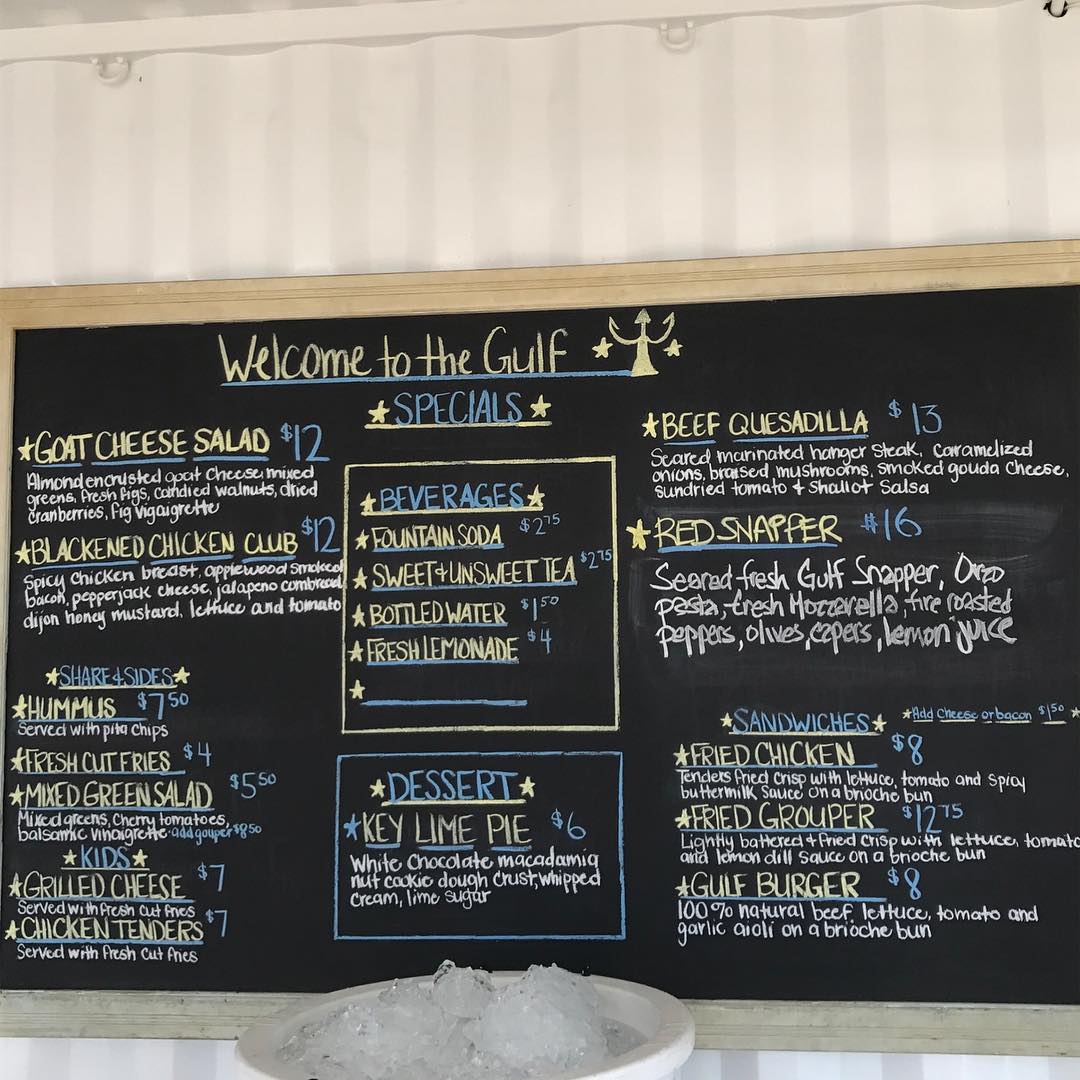 Welcome to the Gulf
SPECIALS
GOAT CHEESE SALAD $12
Almond encrusted goat cheese, mixed
greens, fresh figs, candied walnuts, dried
cranberries, fig vigaigrette
BLACKENED CHICKEN CLUB $12
Spicy chicken breast, applewood smoked
bacon, pepperjack cheese, jalapeno cornbread,
dijon honey mustard, lettuce and tomato
SHARE & SIDES
HUMMUS $7 50
Served with pita chips
FRESH CUT FRIES $4
MIXED GREEN SALAD $5 50
Mixed greens, cherry tomatoes,
balsamic vinaigrette - add gouper $8 50
KIDS
GRILLED CHEESE $7
Served with fresh cut fries
CHICKEN TENDERS $7
Served with fresh cut fries
BEVERAGES
FOUNTAIN SODA $2 75
SWEET & UNSWEET TEA $2 75
BOTTLED WATER $1 50
FRESH LEMONADE $4
DESSERT
KEY LIME PIE $6
White chocolate macadamia
nut cookie dough crust, whipped
cream, lime sugar
BEEF QUESADILLA $13
Seared marinated hanger steak, caramelized
onions, braised mushrooms, smoked gouda cheese,
sundried tomato & shallot salsa
RED SNAPPER $16
Seared fresh Gulf Snapper, Orzo
pasta, fresh Mozzarella, fire roasted
peppers, olives, capers, lemon juice
SANDWICHES
Add cheese or bacon $1 50
FRIED CHICKEN $8
Tenders fried crisp with lettuce, tomato and spicy
buttermilk sauce on a brioche bun
FRIED GROUPER $12 75
Lightly battered & fried crisp with lettuce, tomato
and lemon dill sauce on a brioche bun
GULF BURGER $8
100% natural beef, lettuce, tomato and
garlic aioli on a brioche bun